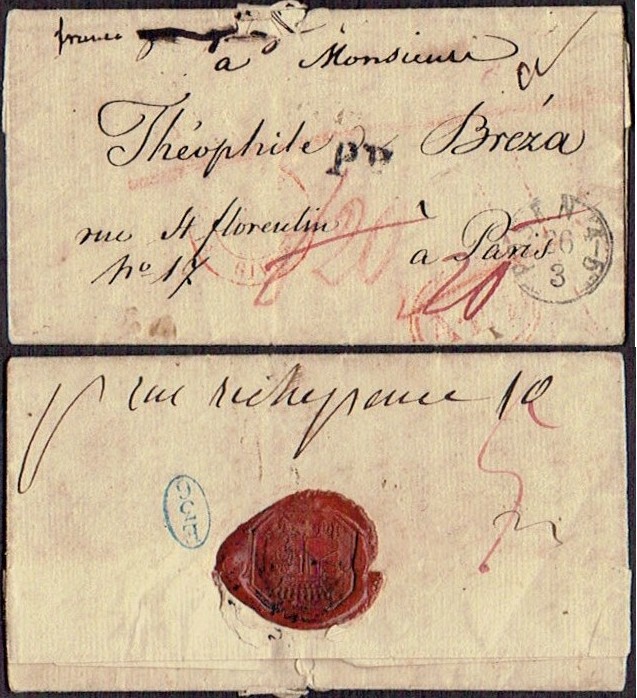 franco
à Monsieur
Théophile de Breza
PD
rue St florentin
à Paris
No 17
20
26
3
rue richepance 10